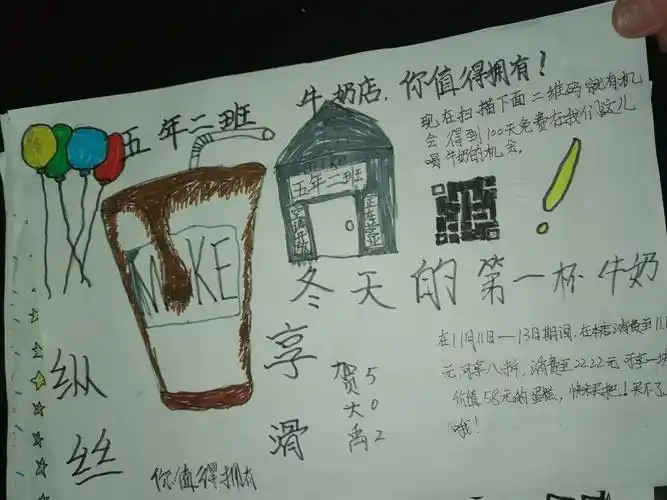 五年二班
牛奶店,你值得拥有!
现在扫描下面二维码就有机
会得到100天免费在我们这儿
喝牛奶的机会。
五年二班
正在营业
MIKE
冬天的第一杯牛奶
纵享
丝滑
贺大禹
502
在11月11日—13日期间,在本店消费至11.1
元可享八折,消费至22.22元可享一块
价值58元的蛋糕,快来买把!买不了
哦!
你值得拥有